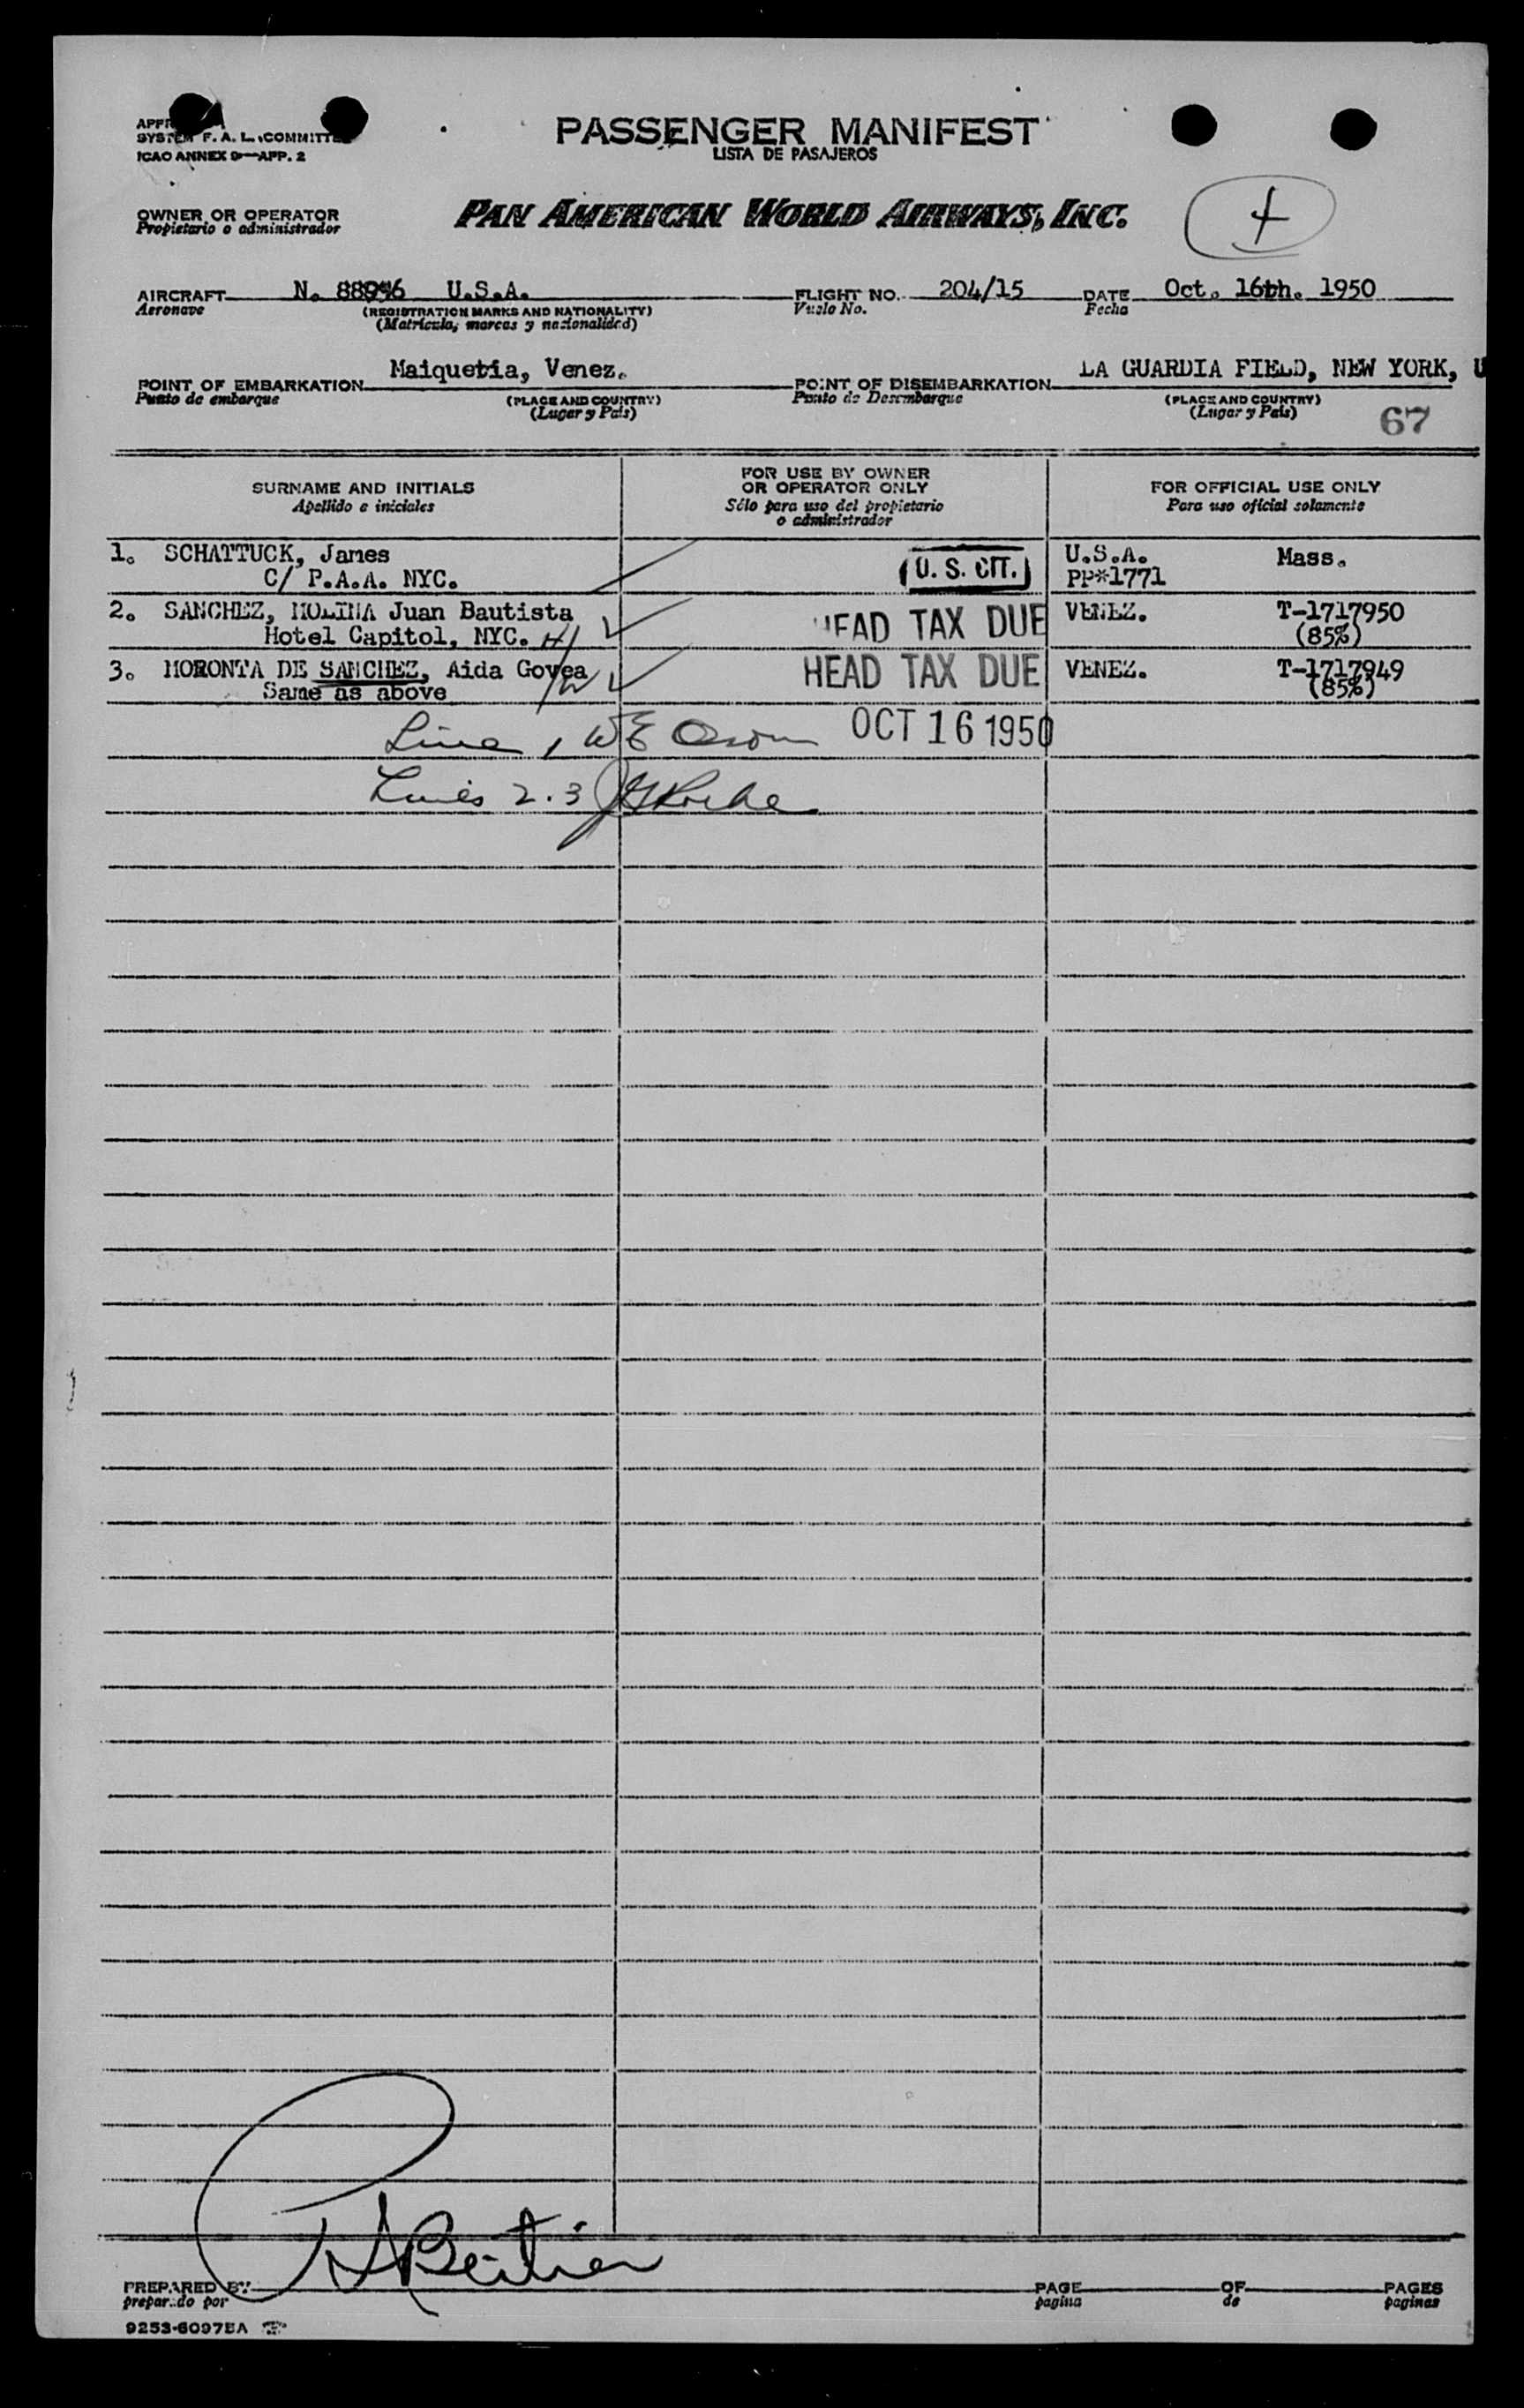 PASSENGER MANIFEST
LISTA DE PASAJEROS
SYSTEM F. A. L. COMMITTEE
ICAO ANNEX 9—APP. 2
OWNER OR OPERATOR
Propietario o administrador
PAN AMERICAN WORLD AIRWAYS, INC.
4
AIRCRAFT N. U.S.A. FLIGHT NO. 204/15 DATE Oct. 16th. 1950
Aeronave (REGISTRATION MARKS AND NATIONALITY) Vuelo No. Fecha
(Matricula, marcas y nacionalidad)
POINT OF EMBARKATION Maiquetia, Venez. POINT OF DISEMBARKATION LA GUARDIA FIELD, NEW YORK, U
Punto de embarque (PLACE AND COUNTRY) Punto de Desembarque (PLACE AND COUNTRY)
(Lugar y País) (Lugar y País)
67
SURNAME AND INITIALS
Apellido e iniciales
FOR USE BY OWNER
OR OPERATOR ONLY
Sólo para uso del propietario
o administrador
FOR OFFICIAL USE ONLY
Para uso oficial solamente
1. SCHATTUCK, James U. S. CIT. U.S.A. Mass.
C/ P.A.A. NYC. PP*1771
2. SANCHEZ, MOLINA Juan Bautista HEAD TAX DUE VENEZ. T-1717950
Hotel Capitol, NYC. H/ (85%)
3. MORONTA DE SANCHEZ, Aida Govea HEAD TAX DUE VENEZ. T-1717949
Same as above /W (85%)
Line 1 WE OCT 16 1950
Lines 2.3
PREPARED BY PAGE OF PAGES
preparado por pagina de paginas
9253-6097EA